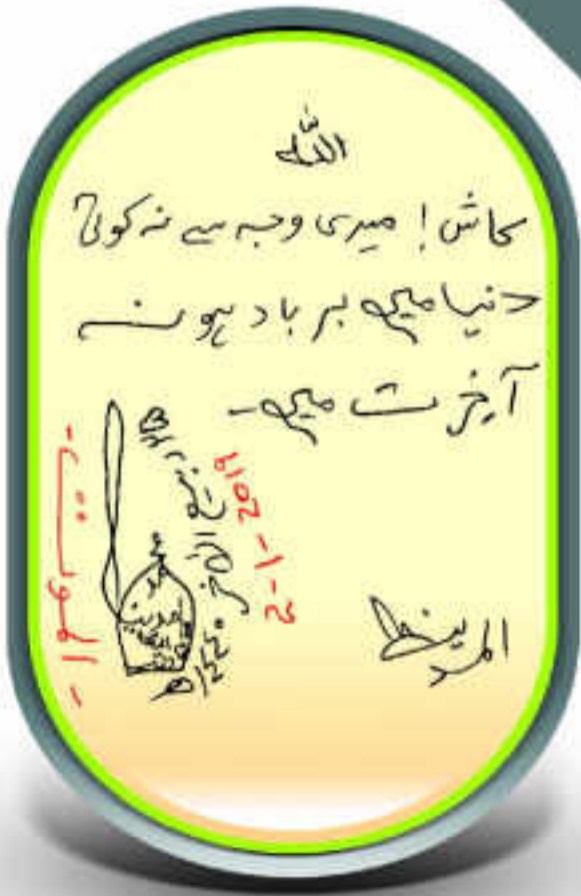 اللہ
کاش! میری وجہ سے نہ کوئی
دنیا میں برباد ہو نہ
آخرت میں۔
المدینہ
ربیع الآخر ۱۴۴۰ھ
2-1-2019
الموت